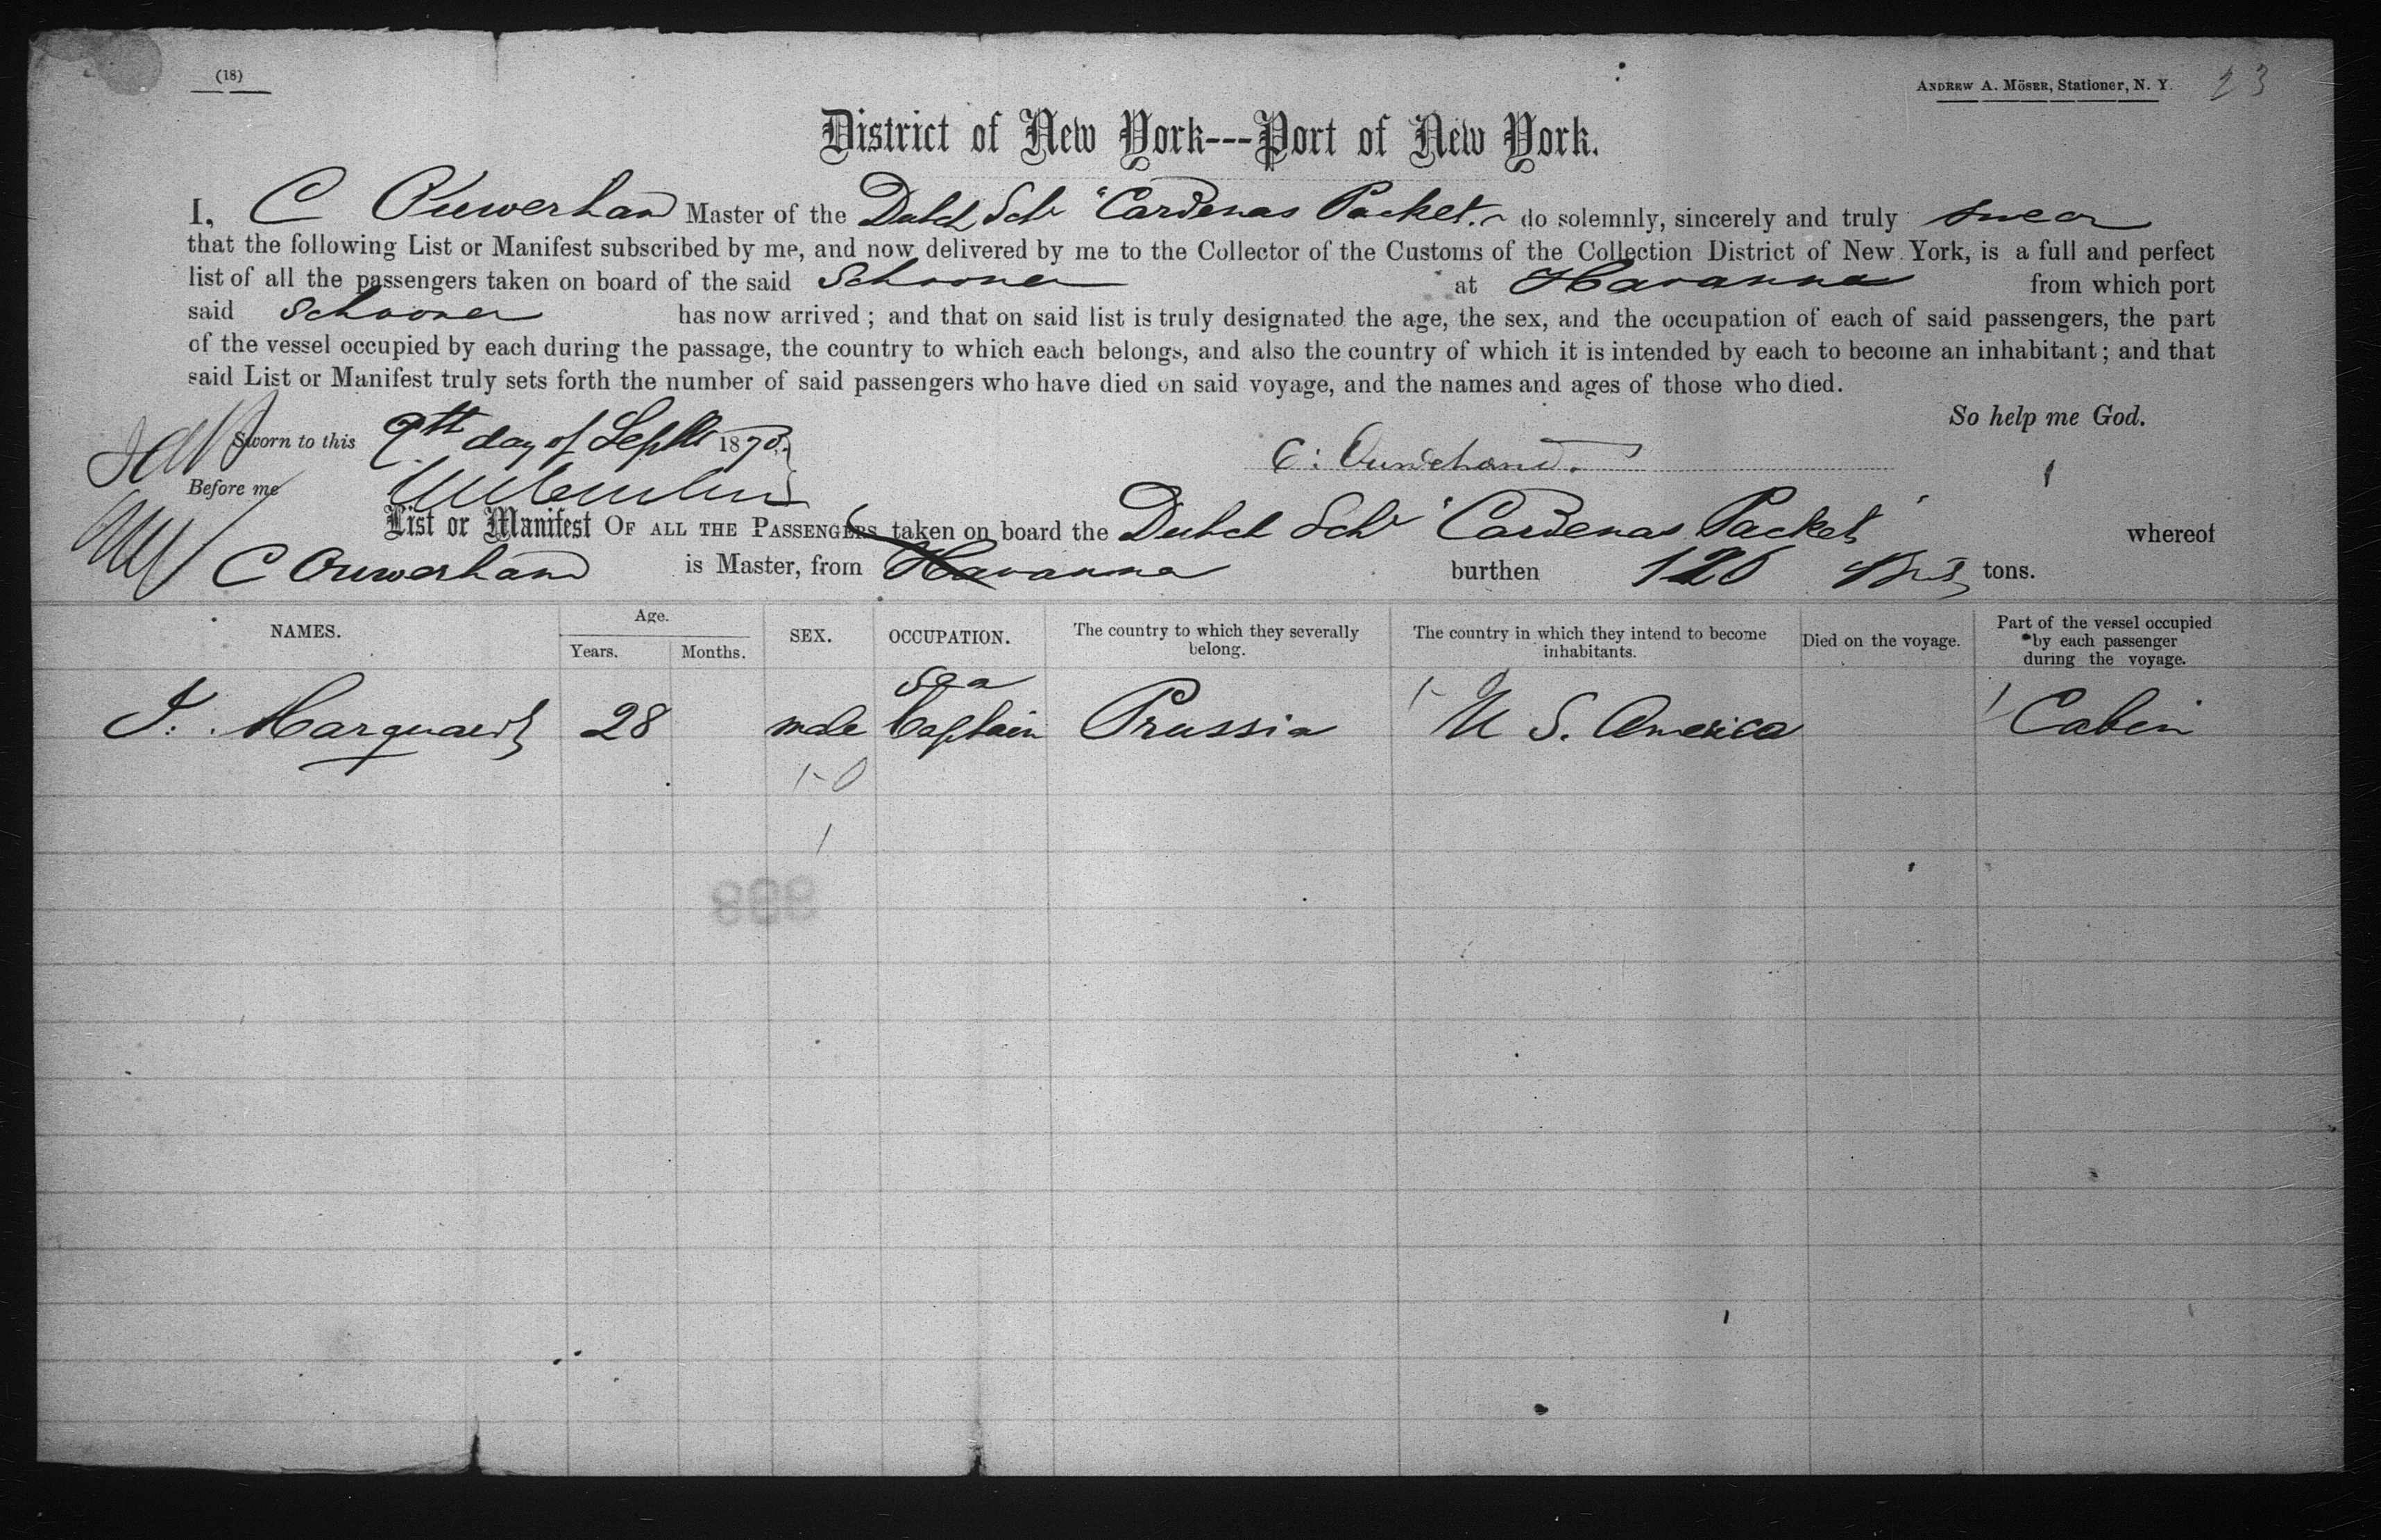 (18)
ANDREW A. MÖSER, Stationer, N. Y. 23
District of New York---Port of New York.
I, C Ouwerhand Master of the Dutch Schr "Cardenas Packet." do solemnly, sincerely and truly swear
that the following List or Manifest subscribed by me, and now delivered by me to the Collector of the Customs of the Collection District of New York, is a full and perfect
list of all the passengers taken on board of the said Schooner at Havanna from which port
said Schooner has now arrived; and that on said list is truly designated the age, the sex, and the occupation of each of said passengers, the part
of the vessel occupied by each during the passage, the country to which each belongs, and also the country of which it is intended by each to become an inhabitant; and that
said List or Manifest truly sets forth the number of said passengers who have died on said voyage, and the names and ages of those who died.
So help me God.
Sworn to this 9th day of Septbr 1870.
C. Ouwehand.
Before me
List or Manifest OF ALL THE PASSENGERS taken on board the Dutch Schr "Cardenas Packet" whereof
C Ouwerhand is Master, from Havanna burthen 126 tons.
NAMES. Age. Years. Months. SEX. OCCUPATION. The country to which they severally belong. The country in which they intend to become inhabitants. Died on the voyage. Part of the vessel occupied by each passenger during the voyage.
J. Marquardt 28 male Sea Captain Prussia U S. America Cabin
1-0
1